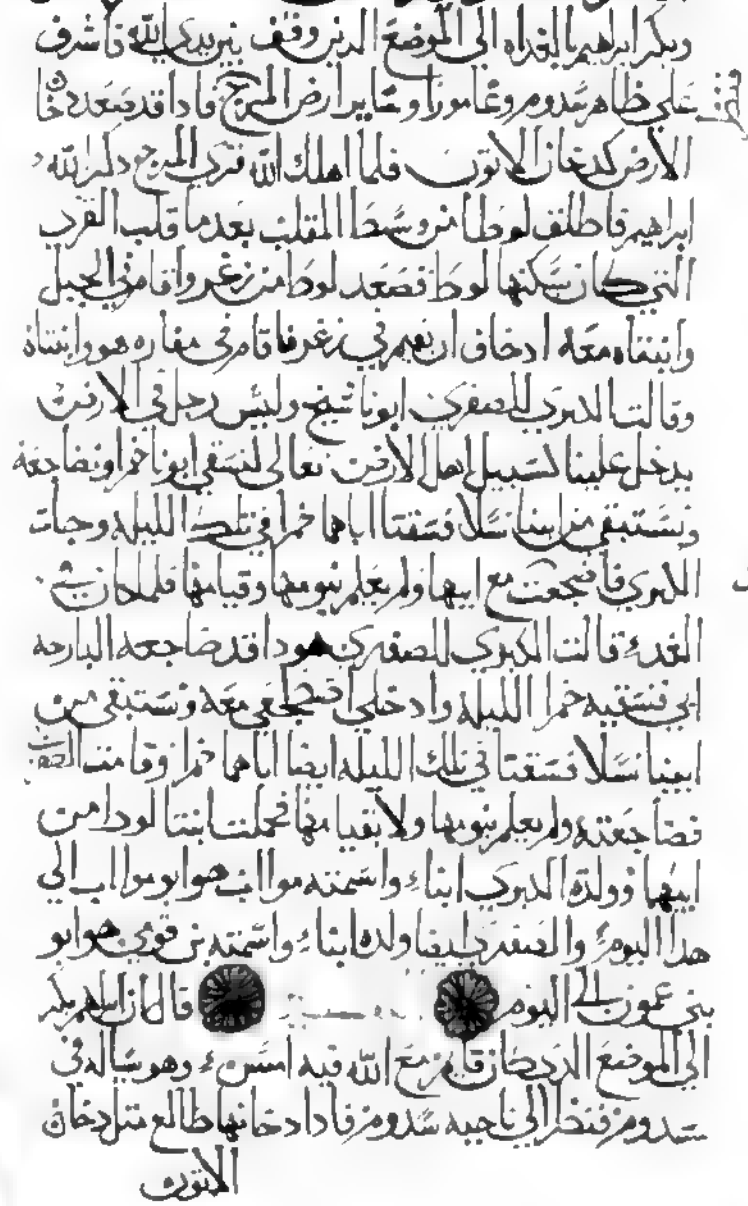 وبكر ابراهيم بالغداه الى الموضع الدى وقف بين يدى الله فاشرف
على ظاهر سدوم وعامورا وعاير ارض المرج فادا قد صعد دخا
الارض كدخان الاتون فلما اهلك الله قرى المرج دكر الله
ابراهيم فاطلق لوطا من وسط المقلب بعدما قلب القرى
التي كان سكنها لوط فصعد لوط من زغر واقام في الجبل
وابنتاه معه ادخاف ان يقيم في زغر فاقام في مغاره هو وابنتاه
وقالتا الكبرى للصغرى ابونا شيخ وليس رجل في الارض
يدخل علينا كسبيل اهل الارض تعالى لنسقي ابونا خمرا ونضاجعه
ونستبقي من ابينا نسلا فسقتا اباهما خمرا في تلك الليله وجات
الكبرى فاضجعت مع ابيها ولم يعلم بنومها وقيامها فلما كان في
الغد قالت الكبرى للصغرى هودا قد ضاجعه البارحه
ابي فنسقيه خمرا الليله وادخلي اضجعي معه ونستبقي من
ابينا نسلا فسقتا في تلك الليله ايضا اباهما خمرا وقامت الصغرى
فضاجعته ولم يعلم بنومها ولا بقيامها فحملت ابنتا لودا من
ابيهما وولدة الكبرى ابنا واسمته مواب هو ابو مواب الي
هدا اليوم والصغرى ايضا ولده ابنا واسمته بن قومي هو ابو
بني عمون الي اليوم قال ان ابراهيم بكر
الي الموضع الدي كان قايم مع الله فيه امس وهو سأله في
سدوم فنظر الي ناحيه سدوم فادا دخانها طالع متل دخان
الاتون